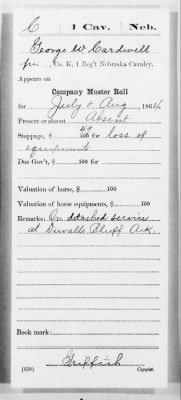 C | 1 Cav. | Neb.
George W. Cardwell
Co. K, 1 Reg't Nebraska Cavalry.
Appears on
Company Muster Roll
for July & Aug, 1864.
Present or absent Absent
Stoppage, $ 47/100 for loss of
equipments
Due Gov't, $ 100 for
Valuation of horse, $ 100
Valuation of horse equipments, $ 100
Remarks: On detached service
at Duvalls Bluff Ark.
Book mark:
Griffith
(358) Copyist.